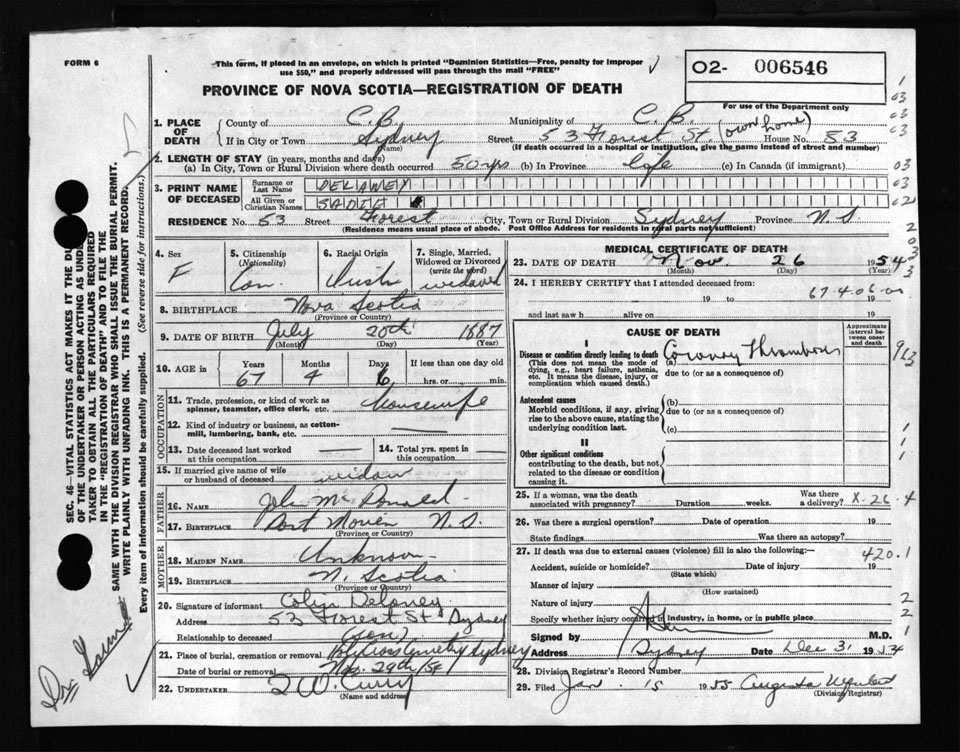 FORM 6
This form, if placed in an envelope, on which is printed "Dominion Statistics—Free, penalty for improper
use $50," and properly addressed will pass through the mail "FREE"
O2- 006546
For use of the Department only
PROVINCE OF NOVA SCOTIA—REGISTRATION OF DEATH
1. PLACE OF DEATH
County of C.B. Municipality of C.B.
If in City or Town Sydney (Name) Street 53 Forest St. (own home) House No. 53
(If death occurred in a hospital or institution, give the name instead of street and number)
2. LENGTH OF STAY (in years, months and days)
(a) In City, Town or Rural Division where death occurred 50 yrs (b) In Province life (c) In Canada (if immigrant)
3. PRINT NAME OF DECEASED
Surname or Last Name DELANEY
All Given or Christian Names SADIE
RESIDENCE No. 53 Street Forest City, Town or Rural Division Sydney Province N.S.
(Residence means usual place of abode. Post Office Address for residents in rural parts not sufficient)
4. Sex F
5. Citizenship (Nationality) Can.
6. Racial Origin Irish
7. Single, Married, Widowed or Divorced (write the word) widowed
8. BIRTHPLACE Nova Scotia
(Province or Country)
9. DATE OF BIRTH July 20th 1887
(Month) (Day) (Year)
10. AGE in Years 67 Months 4 Days 6 If less than one day old hrs. or min.
OCCUPATION
11. Trade, profession, or kind of work as spinner, teamster, office clerk, etc. housewife
12. Kind of industry or business, as cotton-mill, lumbering, bank, etc.
13. Date deceased last worked at this occupation
14. Total yrs. spent in this occupation
15. If married give name of wife or husband of deceased widow
FATHER
16. NAME John McDonald
17. BIRTHPLACE Port Morien N.S.
(Province or Country)
MOTHER
18. MAIDEN NAME Unknown
19. BIRTHPLACE N. Scotia
(Province or Country)
20. Signature of informant Delaney
Address 53 Forest St Sydney
Relationship to deceased son
21. Place of burial, cremation or removal Cemetery Sydney
Date of burial or removal Nov. 29th/54
22. UNDERTAKER Curry
(Name and address)
MEDICAL CERTIFICATE OF DEATH
23. DATE OF DEATH Nov. 26 1954
(Month) (Day) (Year)
24. I HEREBY CERTIFY that I attended deceased from:
19 to 19
67.4.06.00
and last saw h alive on 19
CAUSE OF DEATH
Approximate interval between onset and death
I
Disease or condition directly leading to death (a) Coronary Thrombosis
(This does not mean the mode of dying, e.g., heart failure, asthenia, etc. It means the disease, injury, or complication which caused death.)
due to (or as a consequence of)
Antecedent causes (b)
Morbid conditions, if any, giving rise to the above cause, stating the underlying condition last.
due to (or as a consequence of)
(c)
II
Other significant conditions contributing to the death, but not related to the disease or condition causing it.
25. If a woman, was the death associated with pregnancy? Duration weeks. Was there a delivery? X-26-4
26. Was there a surgical operation? Date of operation 19
State findings Was there an autopsy?
27. If death was due to external causes (violence) fill in also the following:— 420.1
Accident, suicide or homicide? Date of injury 19
(State which)
Manner of injury
(How sustained)
Nature of injury
Specify whether injury occurred in industry, in home, or in public place
Signed by M.D.
Address Sydney Date Dec 31 1954
28. Division Registrar's Record Number
29. Filed Jan. 15 1955 Augusta
(Division Registrar)
SEC. 46—VITAL STATISTICS ACT MAKES IT THE DUTY
OF THE UNDERTAKER OR PERSON ACTING AS UNDER-
TAKER TO OBTAIN ALL THE PARTICULARS REQUIRED
IN THE "REGISTRATION OF DEATH" AND TO FILE THE
SAME WITH THE DIVISION REGISTRAR WHO SHALL ISSUE THE BURIAL PERMIT.
WRITE PLAINLY WITH UNFADING INK. THIS IS A PERMANENT RECORD.
Every item of information should be carefully supplied. (See reverse side for instructions.)
Dr.